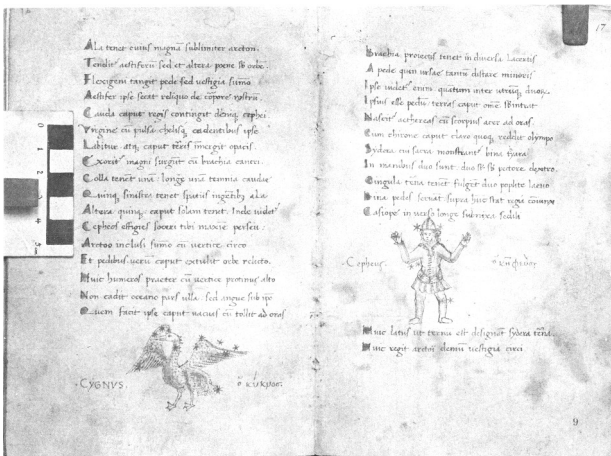 Ala tenet cuius magnā sublimiter arcton.
Tendit aestiferū sed et altera poene sb orbe.
Flexigeni tangit pede sed vestigia sumo
Aestifer ipse secat reliquo de corpore rostrū
Cauda caput regis contingit cephei
Virgine cū pulsa chelisq cadentibus ipse
Labitur atq, caput terris inmergit opacis.
Exoritur magni surgunt cū brachia cancri.
Colla tenet unā longe unā
Quinq, sinistra tenet spatiis ingētibus ala
Altera quinq, caput solam tenet. Inde videt
Cepheos effigies soceri tibi maxime perseu.
Arctoo inclusi sumo cū vertice circo
Et pedibus verū caput extulit orbe
Huic humeros praeter cū vertice protinus alto
Non cadit oceano pars ulla. sed angue sub
Quem facit ipse caput cū tollit ad oras
·CYGNVS· ὁ κύκνος·
17
Brachia proiectis tenet in diversa lacertis
A pede quen ursae tantū distare minoris
Ipse videt enim quātum inter utrūq, duorū
Ipsius esse pedū terras caput omē
Nascitur aethereas cū scorpius acer ad oras.
Cum chirone caput claro quoq, reddit olympo
Sydera cui sacra monstrant bina tiara
In manibus duo sunt. duo sb pectore dextro.
Cingula terna tenet fulget duo poplite laevo
Bina pedes servat supra huic stat regia coniunx
Casiope inverso longe subnixa sedili
·Cepheus·
Huic latus ut ternū est designet sydera terna.
Huic regit arcton demū vestigia circi.
9